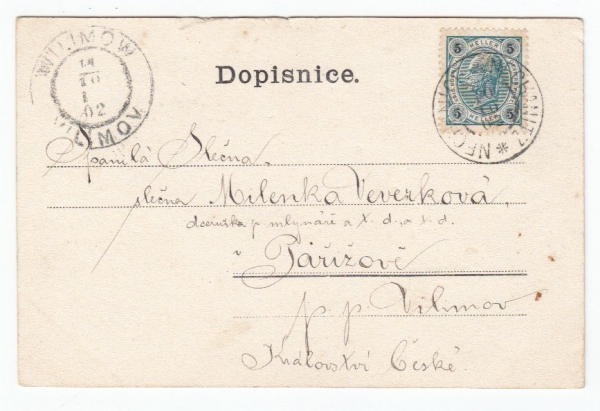 WILIMOW
14
10
1
02
VILIMOV
Dopisnice.
5 5
HELLER
5 5
Spanilá Slečna,
slečna Milenka Veverková,
dceruška p. mlynáře a t. d., a t. d.
v Pařížově
p. p. Vilimov
Království České.